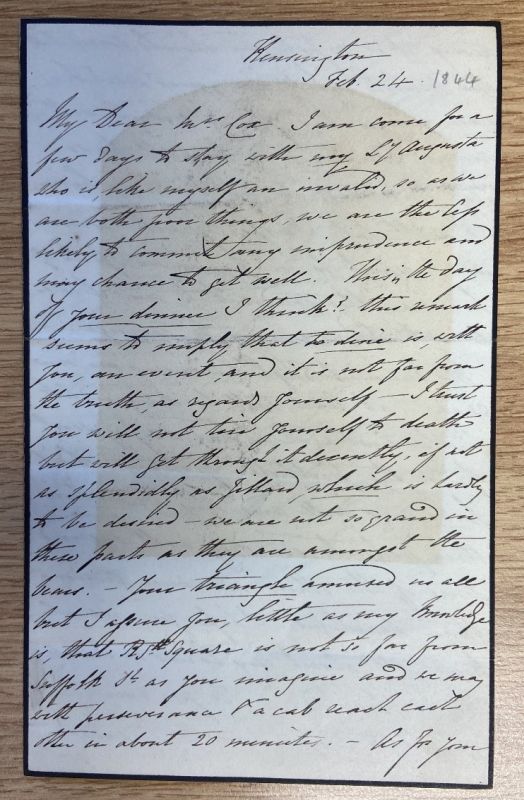 Kensington
Feb. 24. 1844
My Dear Mrs Cox. I am come for a
few days to stay with my Ly Augusta
who is, like myself an invalid, so, as we
are both poor things, we are the less
likely to commit any imprudence and
may chance to get well. This is the day
of your dinner I think? this remark
seems to imply that to dine is, with
you, an event, and it is not far from
the truth, as regards yourself - I trust
you will not tire yourself to death
but will get through it decently, if not
as splendidly as which is hardly
to be desired - we are not so grand in
these parts as they are amongst the
bears. - Your triangle amused us all
but I assure you, little as my knowledge
is, that Square is not so far from
Suffolk St as you imagine and we may
with perseverance & a cab reach each
other in about 20 minutes. - As for your